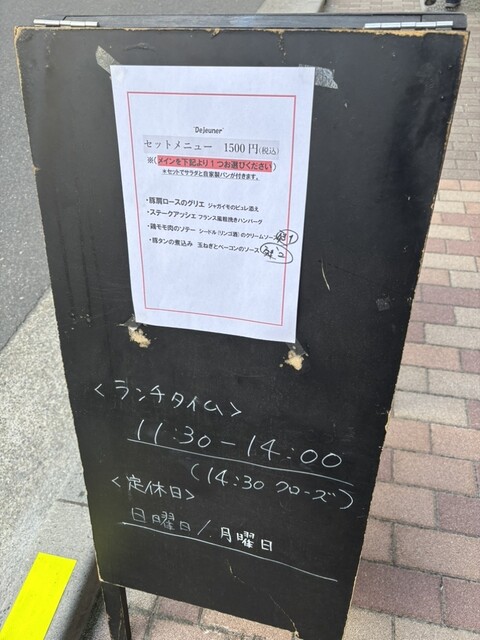 "Dejeuner"
セットメニュー 1500円(税込)
※(メインを下記より1つお選びください)
＊セットでサラダと自家製パンが付きます。
・豚肩ロースのグリエ ジャガイモのピュレ添え
・ステークアッシェ フランス風粗挽きハンバーグ
・鶏モモ肉のソテー シードル(リンゴ酒)のクリームソース
・豚タンの煮込み 玉ねぎとベーコンのソース
<ランチタイム>
11:30-14:00
(14:30 クローズ)
<定休日>
日曜日/月曜日